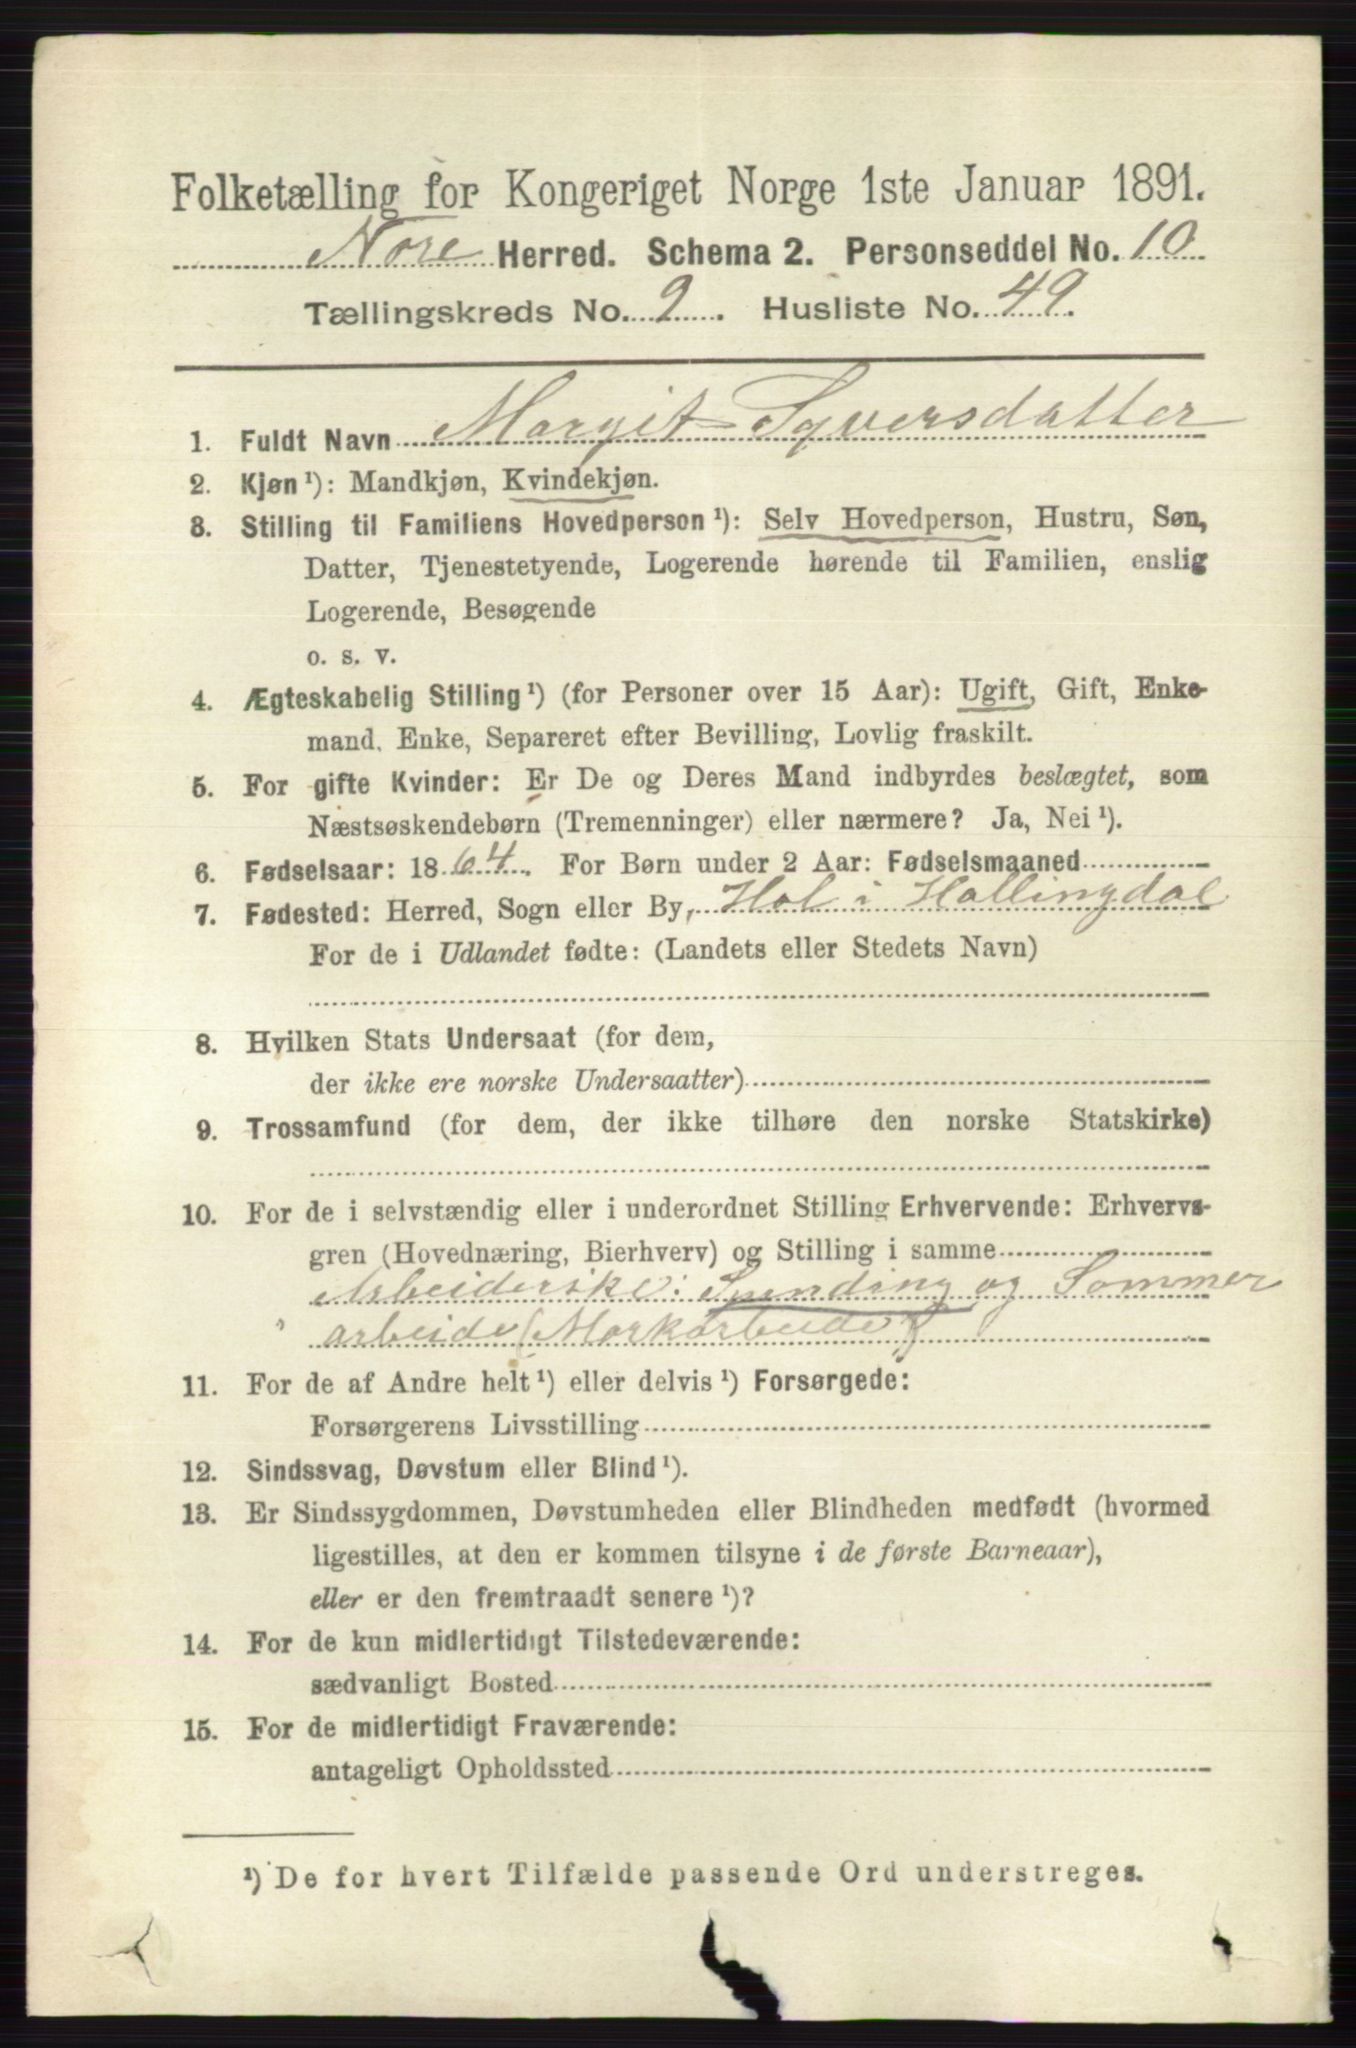 Folketælling for Kongeriget Norge 1ste Januar 1891.
Nore Herred. Schema 2. Personseddel No. 10
Tællingskreds No. 9. Husliste No. 49.
1. Fuldt Navn Margit Syversdatter
2. Kjøn ¹): Mandkjøn, Kvindekjøn.
3. Stilling til Familiens Hovedperson ¹): Selv Hovedperson, Hustru, Søn,
Datter, Tjenestetyende, Logerende hørende til Familien, enslig
Logerende, Besøgende
o. s. v.
4. Ægteskabelig Stilling ¹) (for Personer over 15 Aar): Ugift, Gift, Enke-
mand, Enke, Separeret efter Bevilling, Lovlig fraskilt.
5. For gifte Kvinder: Er De og Deres Mand indbyrdes beslægtet, som
Næstsøskendebørn (Tremenninger) eller nærmere? Ja, Nei ¹).
6. Fødselsaar: 1864. For Børn under 2 Aar: Fødselsmaaned
7. Fødested: Herred, Sogn eller By, Hol i Hallingdal
For de i Udlandet fødte: (Landets eller Stedets Navn)
8. Hvilken Stats Undersaat (for dem,
der ikke ere norske Undersaatter)
9. Trossamfund (for dem, der ikke tilhøre den norske Statskirke)
10. For de i selvstændig eller i underordnet Stilling Erhvervende: Erhvervs-
gren (Hovednæring, Bierhverv) og Stilling i samme
Arbeiderske: Spinding og Sommer
arbeide (Markarbeide)
11. For de af Andre helt ¹) eller delvis ¹) Forsørgede:
Forsørgerens Livsstilling
12. Sindssvag, Døvstum eller Blind ¹).
13. Er Sindssygdommen, Døvstumheden eller Blindheden medfødt (hvormed
ligestilles, at den er kommen tilsyne i de første Barneaar),
eller er den fremtraadt senere ¹)?
14. For de kun midlertidigt Tilstedeværende:
sædvanligt Bosted
15. For de midlertidigt Fraværende:
antageligt Opholdssted
¹) De for hvert Tilfælde passende Ord understreges.